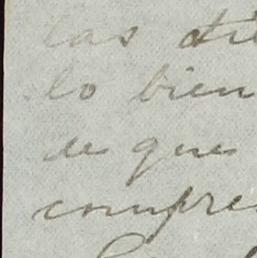 las di
lo bien
de que
compre